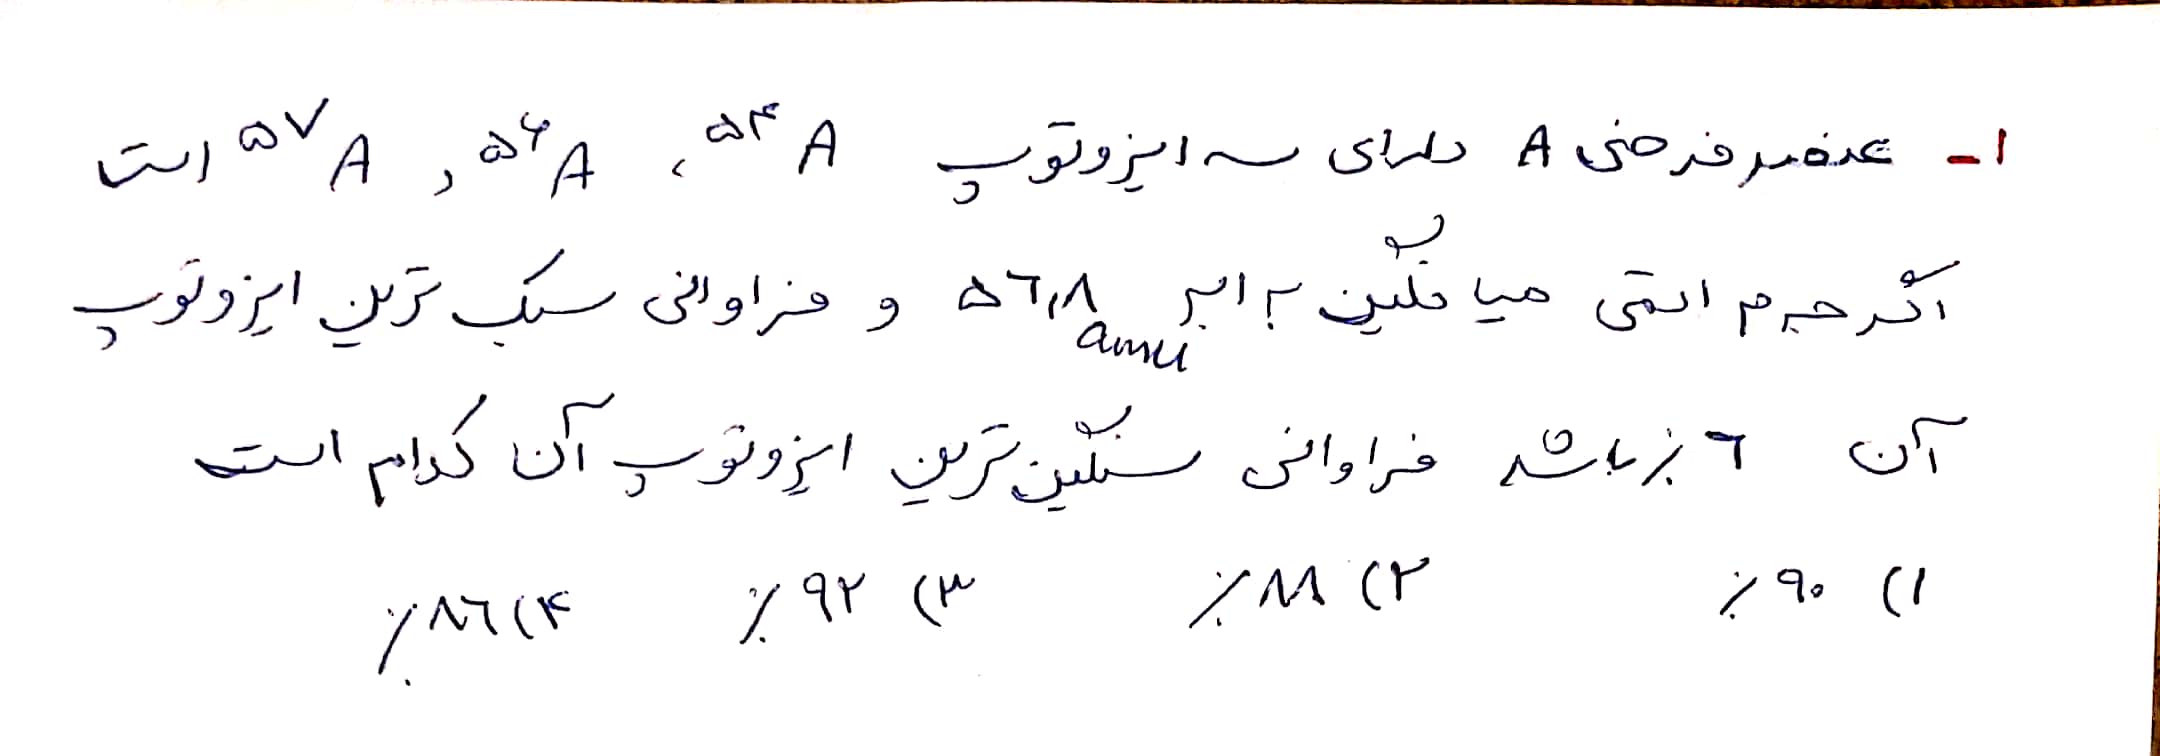 ۱- عنصر فرضی A دارای سه ایزوتوپ ⁵⁴A ، ⁵⁶A و ⁵⁷A است
اگر جرم اتمی میانگین برابر ۵۶٫۸ amu و فراوانی سبک ترین ایزوتوپ
آن ۶٪ باشد فراوانی سنگین ترین ایزوتوپ آن کدام است
۱) ۹۰٪ ۲) ۸۸٪ ۳) ۹۲٪ ۴) ۸۶٪